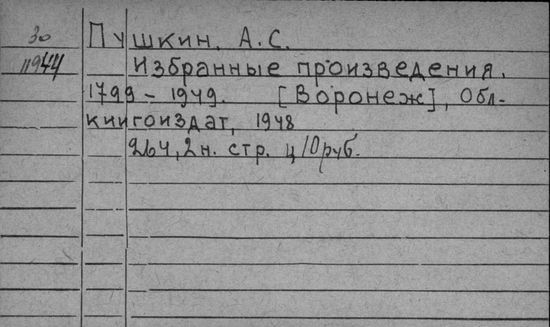 30 Пушкин, А.С.
11944 Избранные произведения.
1799 - 1949. [Воронеж], Обл-
книгоиздат, 1948
264, 2 н. стр. ц 10 руб.